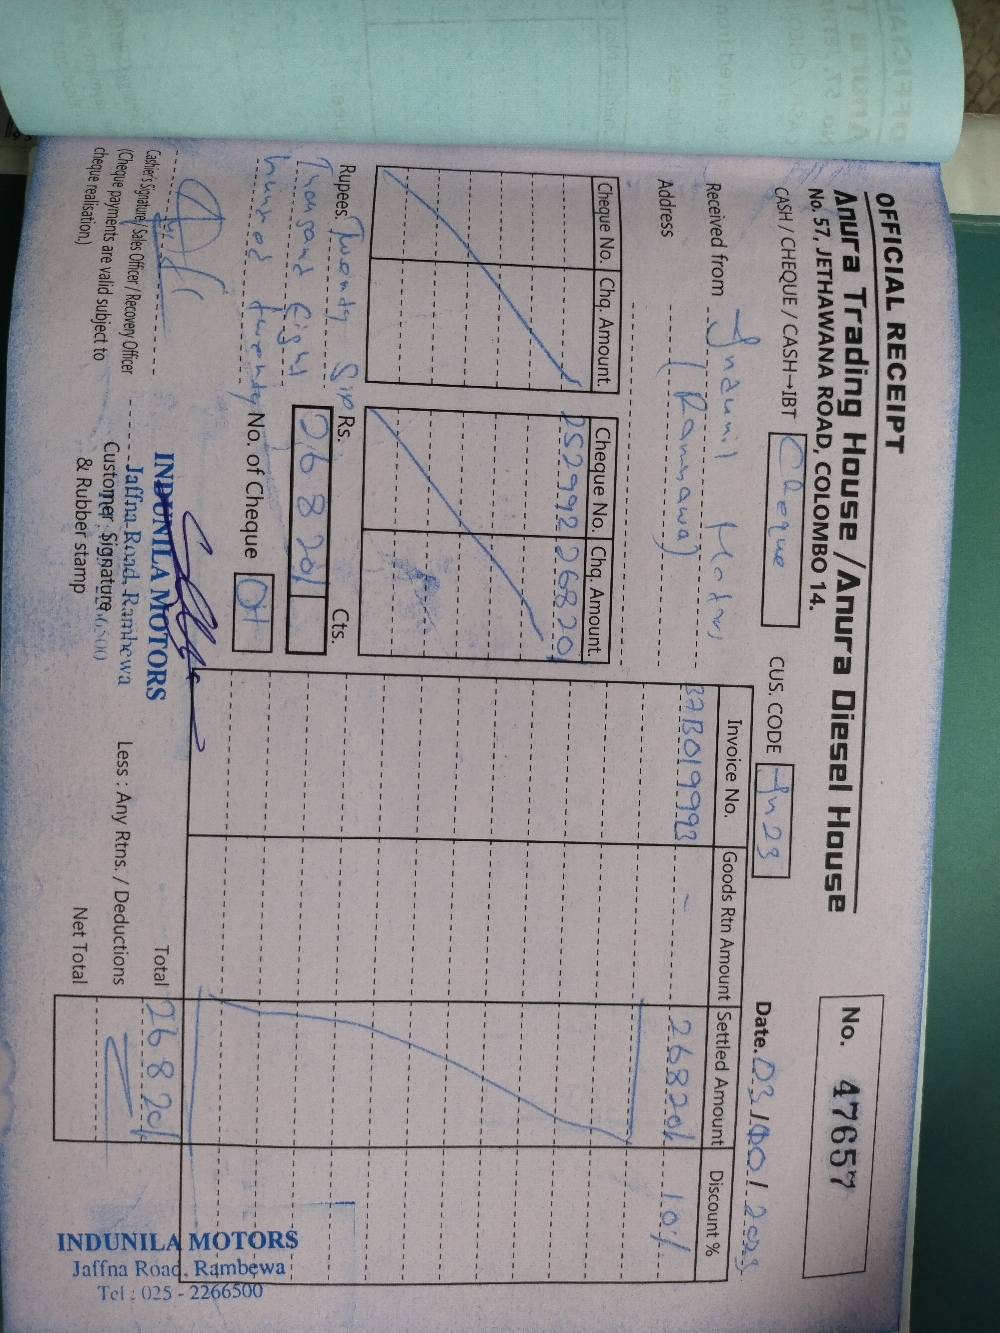 OFFICIAL RECEIPT
Anura Trading House / Anura Diesel House
No. 57, JETHAWANA ROAD, COLOMBO 14.
No. 47657
CASH / CHEQUE / CASH→IBT Cheque
CUS. CODE In23
Date. 03/ / 2023
Received from Indunil Motors
Address (Rammawa)
Cheque No. Chq. Amount. Cheque No. Chq. Amount.
252992 26820/
Invoice No. Goods Rtn Amount Settled Amount Discount %
37B019993 - 26820/ 10%
Rupees. Twenty Six
Thousand Eight
hundred twenty
Rs. Cts.
26820/
No. of Cheque 01
Cashier's Signature/ Sales Officer / Recovery Officer
(Cheque payments are valid subject to
cheque realisation.)
INDUNILA MOTORS
Jaffna Road, Rambewa
Customer Signature
& Rubber stamp
Total 26820/
Less : Any Rtns. / Deductions
Net Total
INDUNILA MOTORS
Jaffna Road, Rambewa
Tel : 025 - 2266500